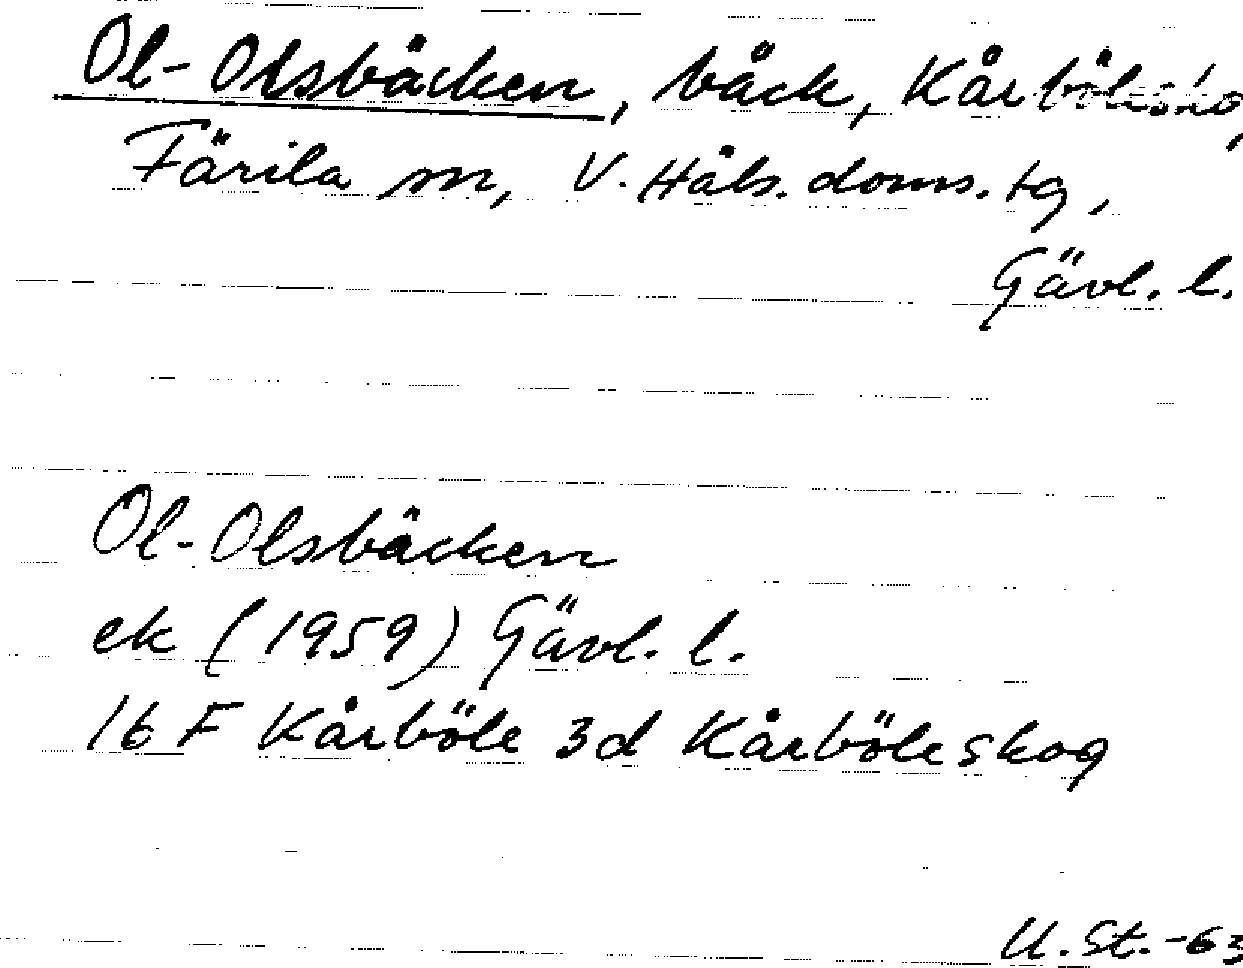 Ol-Olsbäcken, bäck, Kårbölesko,
Färila sn, V. Häls. doms. tg,
Gävl. l.
Ol-Olsbäcken
ek (1959) Gävl. l.
16 F Kårböle 3d Kårböleskog
U. St. -63